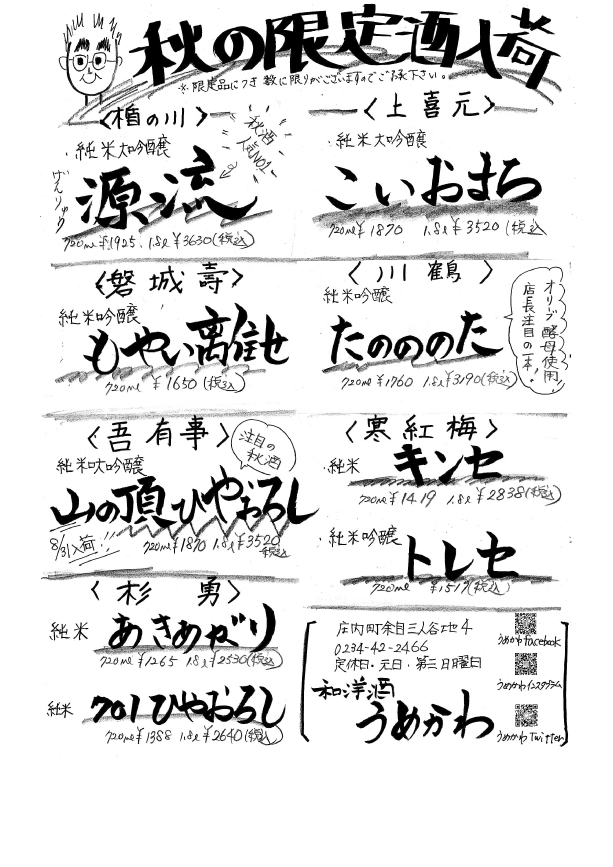 秋の限定酒入荷
※限定品につき数に限りがございますのでご了承下さい。
〈楯の川〉
・純米大吟醸
秋酒
人気No1
げんりゅう
源流
720ml ¥1925 1.8ℓ ¥3630(税込)
〈上喜元〉
・純米大吟醸
こいおまち
720ml ¥1870 1.8ℓ ¥3520(税込)
〈磐城壽〉
純米吟醸
もやい離さ
720ml ¥1650(税込)
〈川鶴〉
純米吟醸
たのののた
720ml ¥1760 1.8ℓ ¥3190(税込)
オリーブ酵母使用
店長注目の一本!!
〈吾有事〉
注目の
秋酒
純米吟醸
山の頂ひやおろし
8/31入荷!!
720ml ¥1870 1.8ℓ ¥3520
税込
〈寒紅梅〉
・純米
キンセ
720ml ¥1419 1.8ℓ ¥2838(税込)
・純米吟醸
トレセ
720ml ¥1517(税込)
〈杉勇〉
純米
あきあがり
720ml ¥1265 1.8ℓ ¥2530(税込)
純米
701ひやおろし
720ml ¥1388 1.8ℓ ¥2640(税込)
庄内町余目三人谷地4
0234-42-2466
定休日・元日・第三日曜日
和洋酒
うめかわ
うめかわfacebook
うめかわインスタグラム
うめかわTwitter